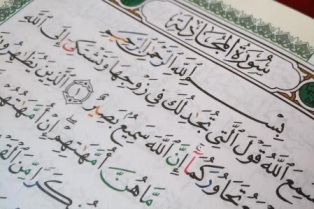 سُورَةُ الْمُجَادَلَةِ
بِسْمِ اللَّهِ الرَّحْمَٰنِ الرَّحِيمِ
سَمِعَ اللَّهُ قَوْلَ الَّتِي تُجَٰدِلُكَ فِي زَوْجِهَا وَتَشْتَكِي إِلَى اللَّهِ
تَحَاوُرَكُمَا إِنَّ اللَّهَ سَمِيعٌ بَصِيرٌ ١ الَّذِينَ يُظَٰهِرُونَ
مَا هُنَّ أُمَّهَٰتِهِمْ إِنْ أُمَّهَٰتُهُمْ
مِّنَ